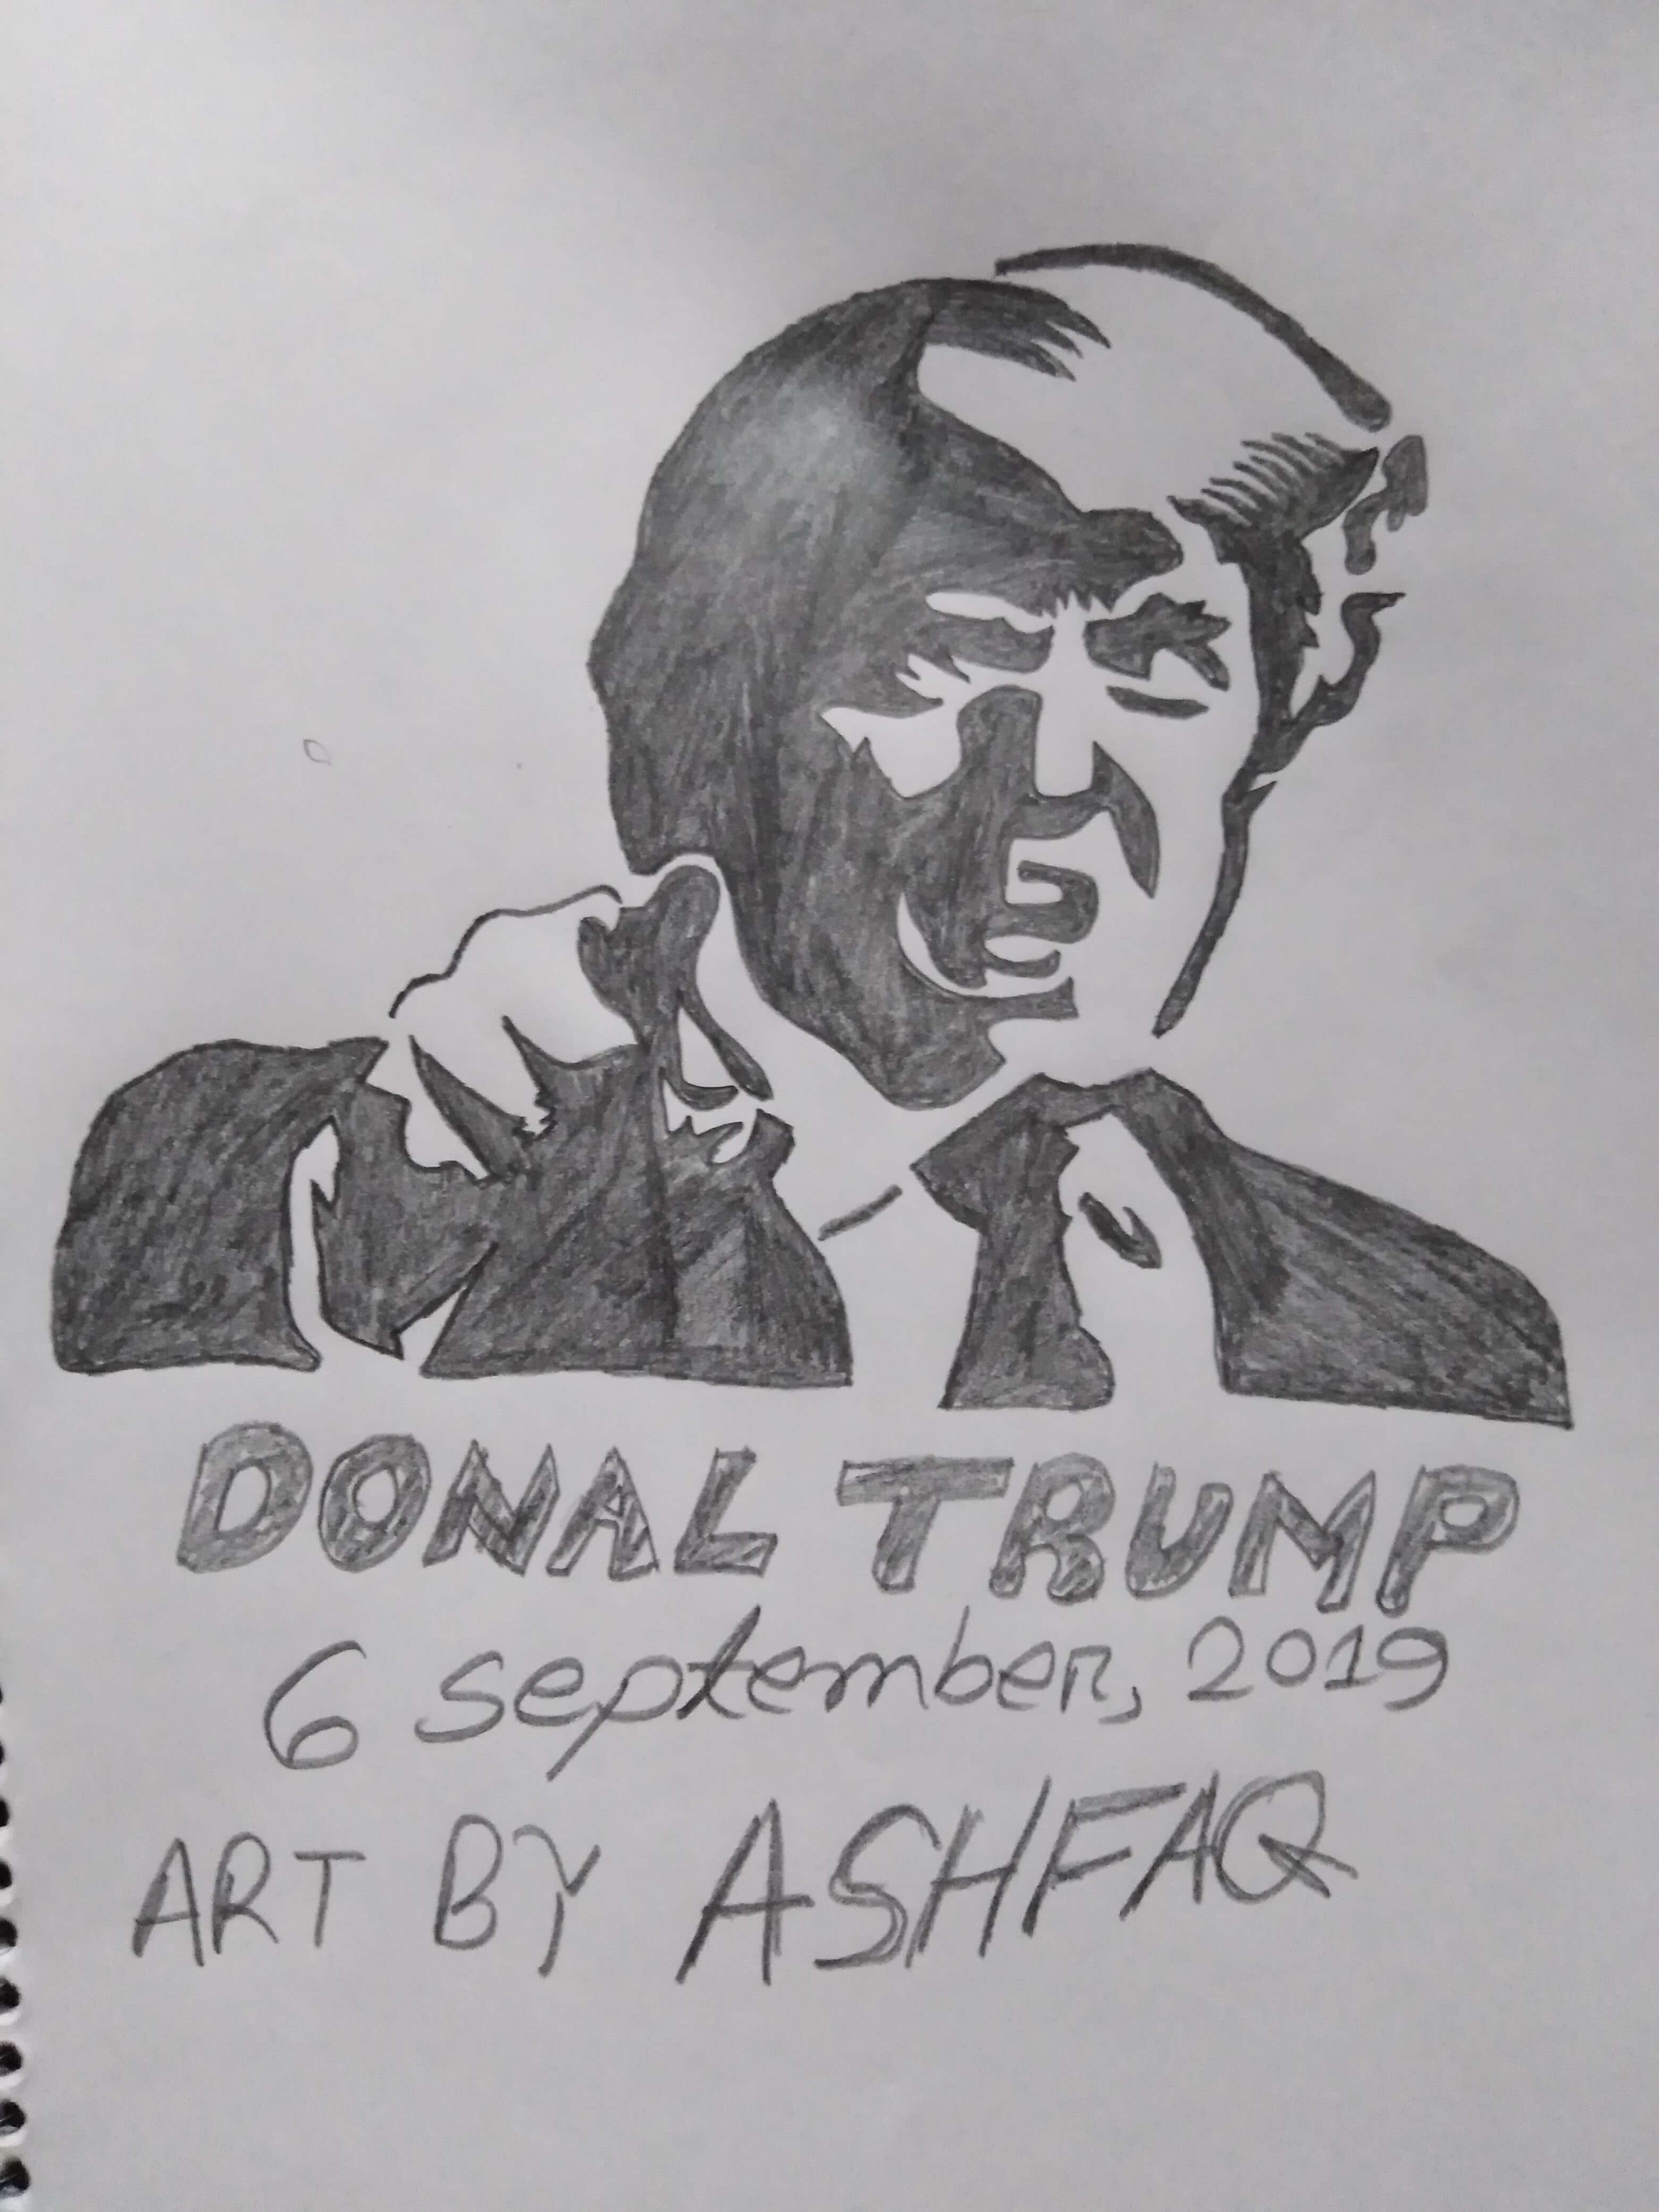 DONAL TRUMP
6 september, 2019
ART BY ASHFAQ